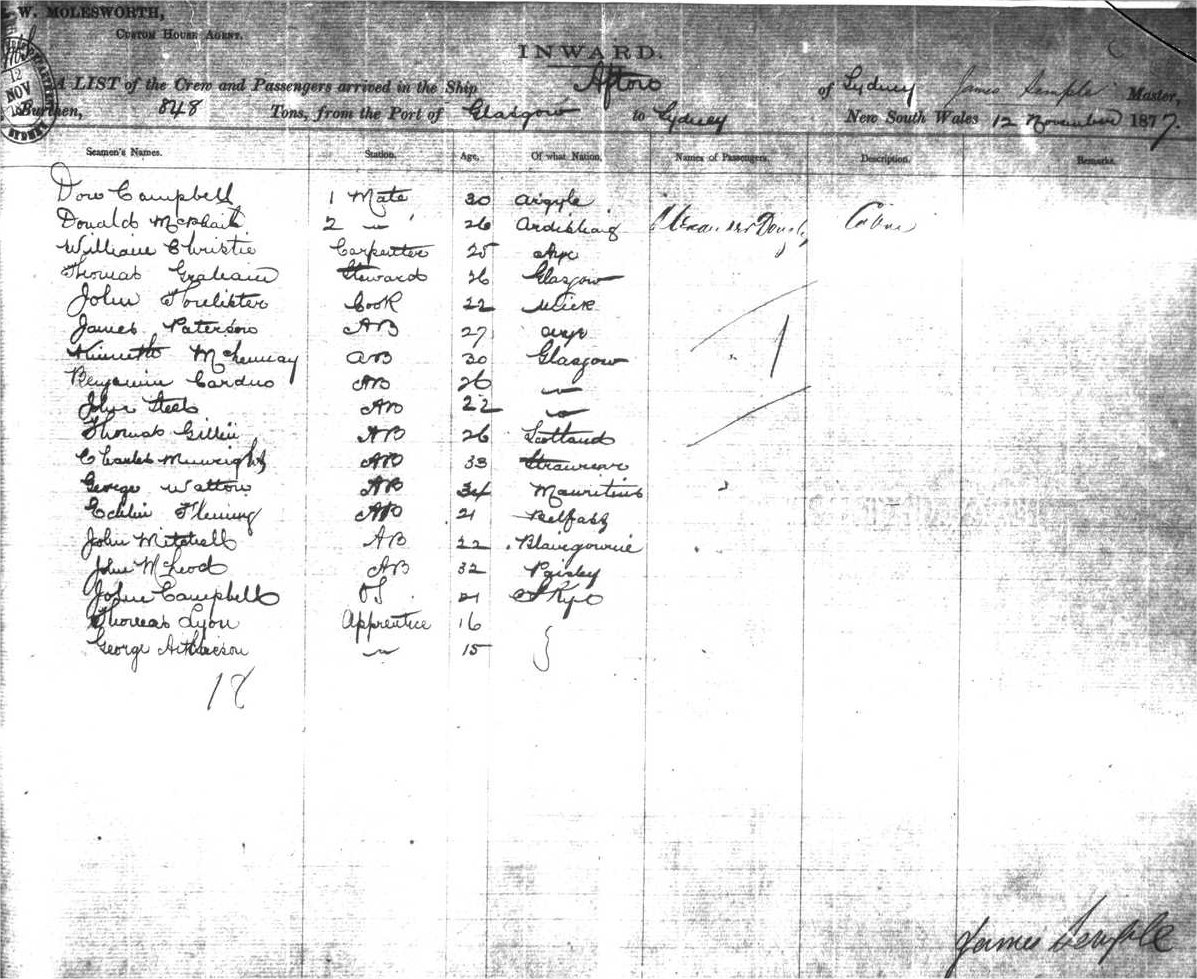 W. MOLESWORTH,
CUSTOM HOUSE AGENT.
INWARD.
12
NOV
SYDNEY
A LIST of the Crew and Passengers arrived in the Ship of Sydney James Semple Master,
Burthen, 848 Tons, from the Port of Glasgow to Sydney New South Wales 12 November 1877.
Seamen's Names. Station. Age. Of what Nation. Names of Passengers. Description. Remarks.
Campbell 1 Mate 30 Argyle
Donald McPhail 2 " 26
William Christie Carpenter 25 Ayr
Thomas Graham Steward 26 Glasgow
John Cook 22 Wick
James Paterson AB 27 Ayr
Kenneth AB 30 Glasgow
Benjamin AB 26 "
John Steel AB 22 "
Thomas Gillin AB 26 Scotland
Charles AB 33 Stranraer
George Watton AB 34 Mauritius
Fleming AB 21 Belfast
John Mitchell AB 22 Blairgowrie
John McLeod AB 32 Paisley
John Campbell OS 21 Skye
Thomas Lyon Apprentice 16
George Aitkieson " 15
18
James Semple